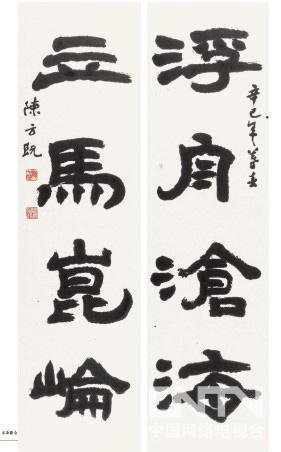 浮舟滄海
辛巳年
立馬崑崘
陳方既
中国网络电视台